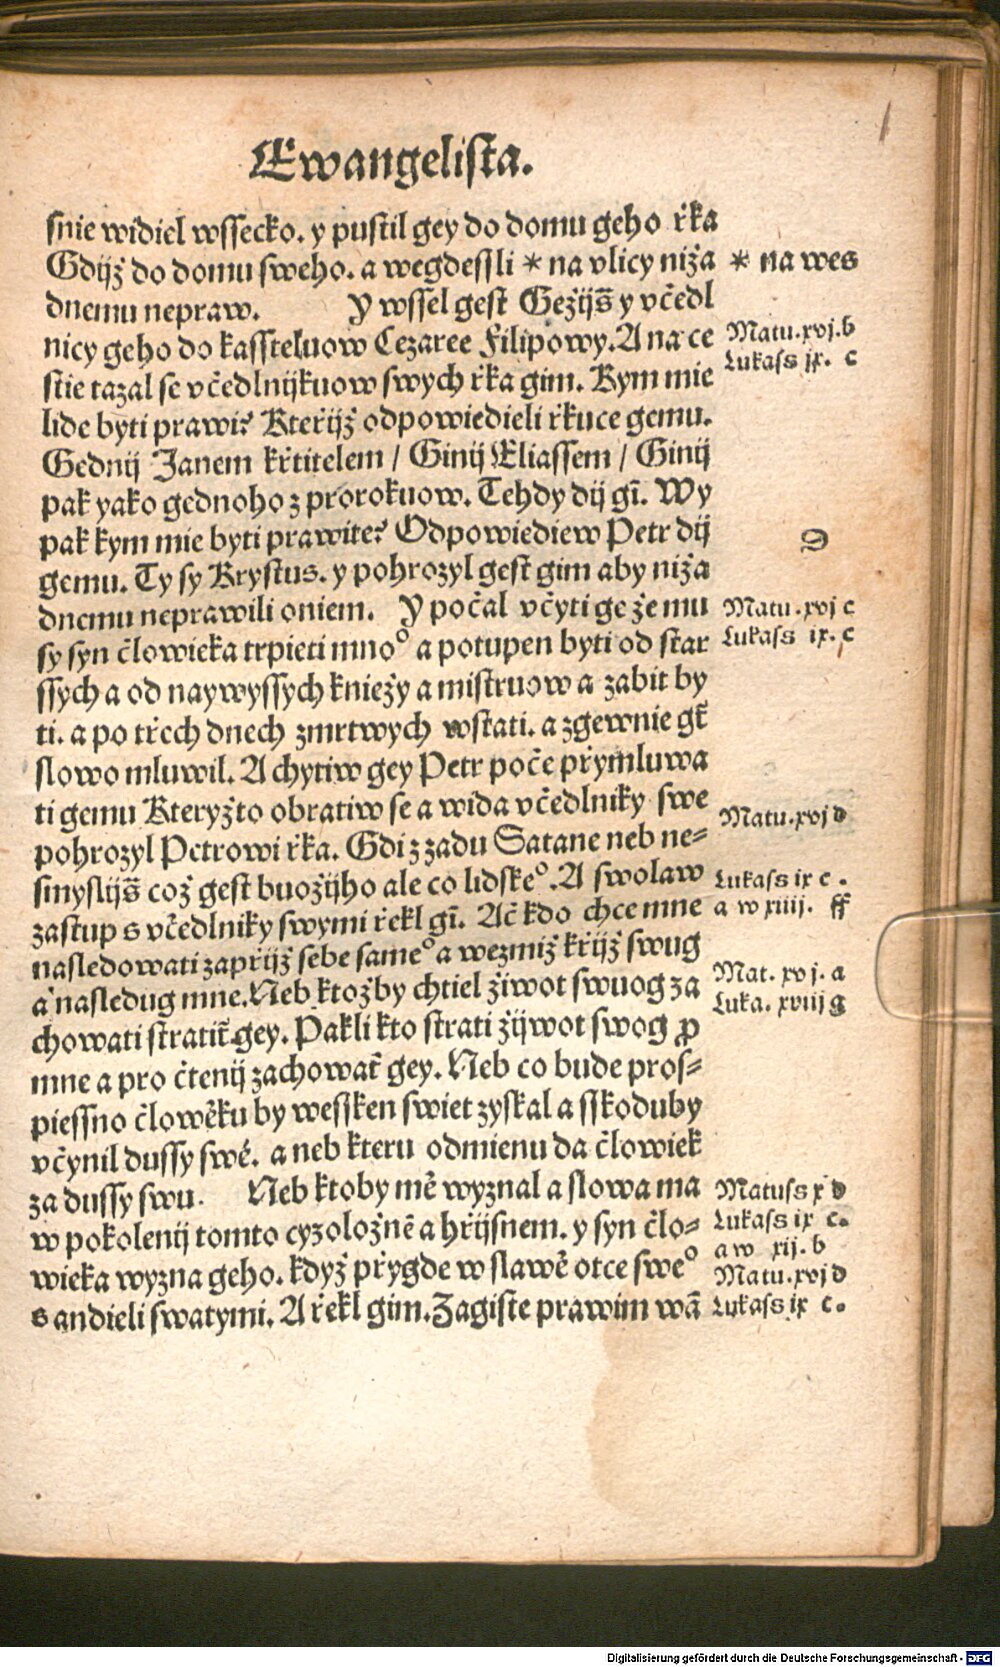 Ewangelista.
snie widiel wssecko. y pustil gey do domu geho řka
Gdijž do domu sweho. a wegdessli * na vlicy niža * na wes
dnemu nepraw. Y wssel gest Gežijs̄ y včedl
nicy geho do kassteluow Cezaree Filipowy. A na ce
Matu. xvj. b
Lukass ix. c
stie tazal se včedlnijkuow swych řka gim. Kym mie
lide byti prawi? Kteřijž odpowiedieli řkuce gemu.
Gednij Janem křtitelem / Ginij Eliassem / Ginij
pak yako gednoho z prorokuow. Tehdy dij gī. Wy
pak kym mie byti prawite? Odpowiediew Petr dij
D
gemu. Ty sy Krystus. y pohrozyl gest gim aby niža
dnemu neprawili oniem. Y počal včyti ge že mu
Matu. xvj c
Lukass ix. c
sy syn človieka trpieti mnoº a potupen byti od star
ssych a od naywyssych kniežy a mistruow a zabit by
ti. a po třech dnech zmrtwych wstati. a zgewnie gt̄
slowo mluwil. A chytiw gey Petr poče přymluwa
ti gemu Kteryžto obratiw se a wida včedlniky swe
Matu. xvj d
pohrozyl Petrowi řka. Gdi z zadu Satane neb ne=
smyslijs̄ což gest buožijho ale co lidskeº. A swolaw
Lukass ix c.
a w xiiij. ff
zastup s včedlniky swymi řekl gī. Ač kdo chce mne
nasledowati zapřijž sebe sameº a wezmiž křijž swug
Mat. xvj. a
Luka. xviij g
a nasledug mne. Neb ktožby chtiel žiwot swuog za
chowati stratit̄ gey. Pakli kto strati žijwot swog ꝓ
mne a pro čtenij zachowat̄ gey. Neb co bude pros=
piessno čloẇeku by wessken swiet zyskal a sskoduby
včynil dussy swé. a neb kteru odmienu da človiek
za dussy swu. Neb ktoby mē wyznal a slowa ma
Matuss x d
Lukass ix c.
w pokolenij tomto cyzoložnē a hřijsnem. y syn člo=
a w xij. b
wieka wyzna geho. když přygde w slawē otce sweº
Matu. xvj d
s andieli swatymi. A řekl gim. Zagiste prawim wā
Lukass ix c.
Digitalisierung gefördert durch die Deutsche Forschungsgemeinschaft - DFG